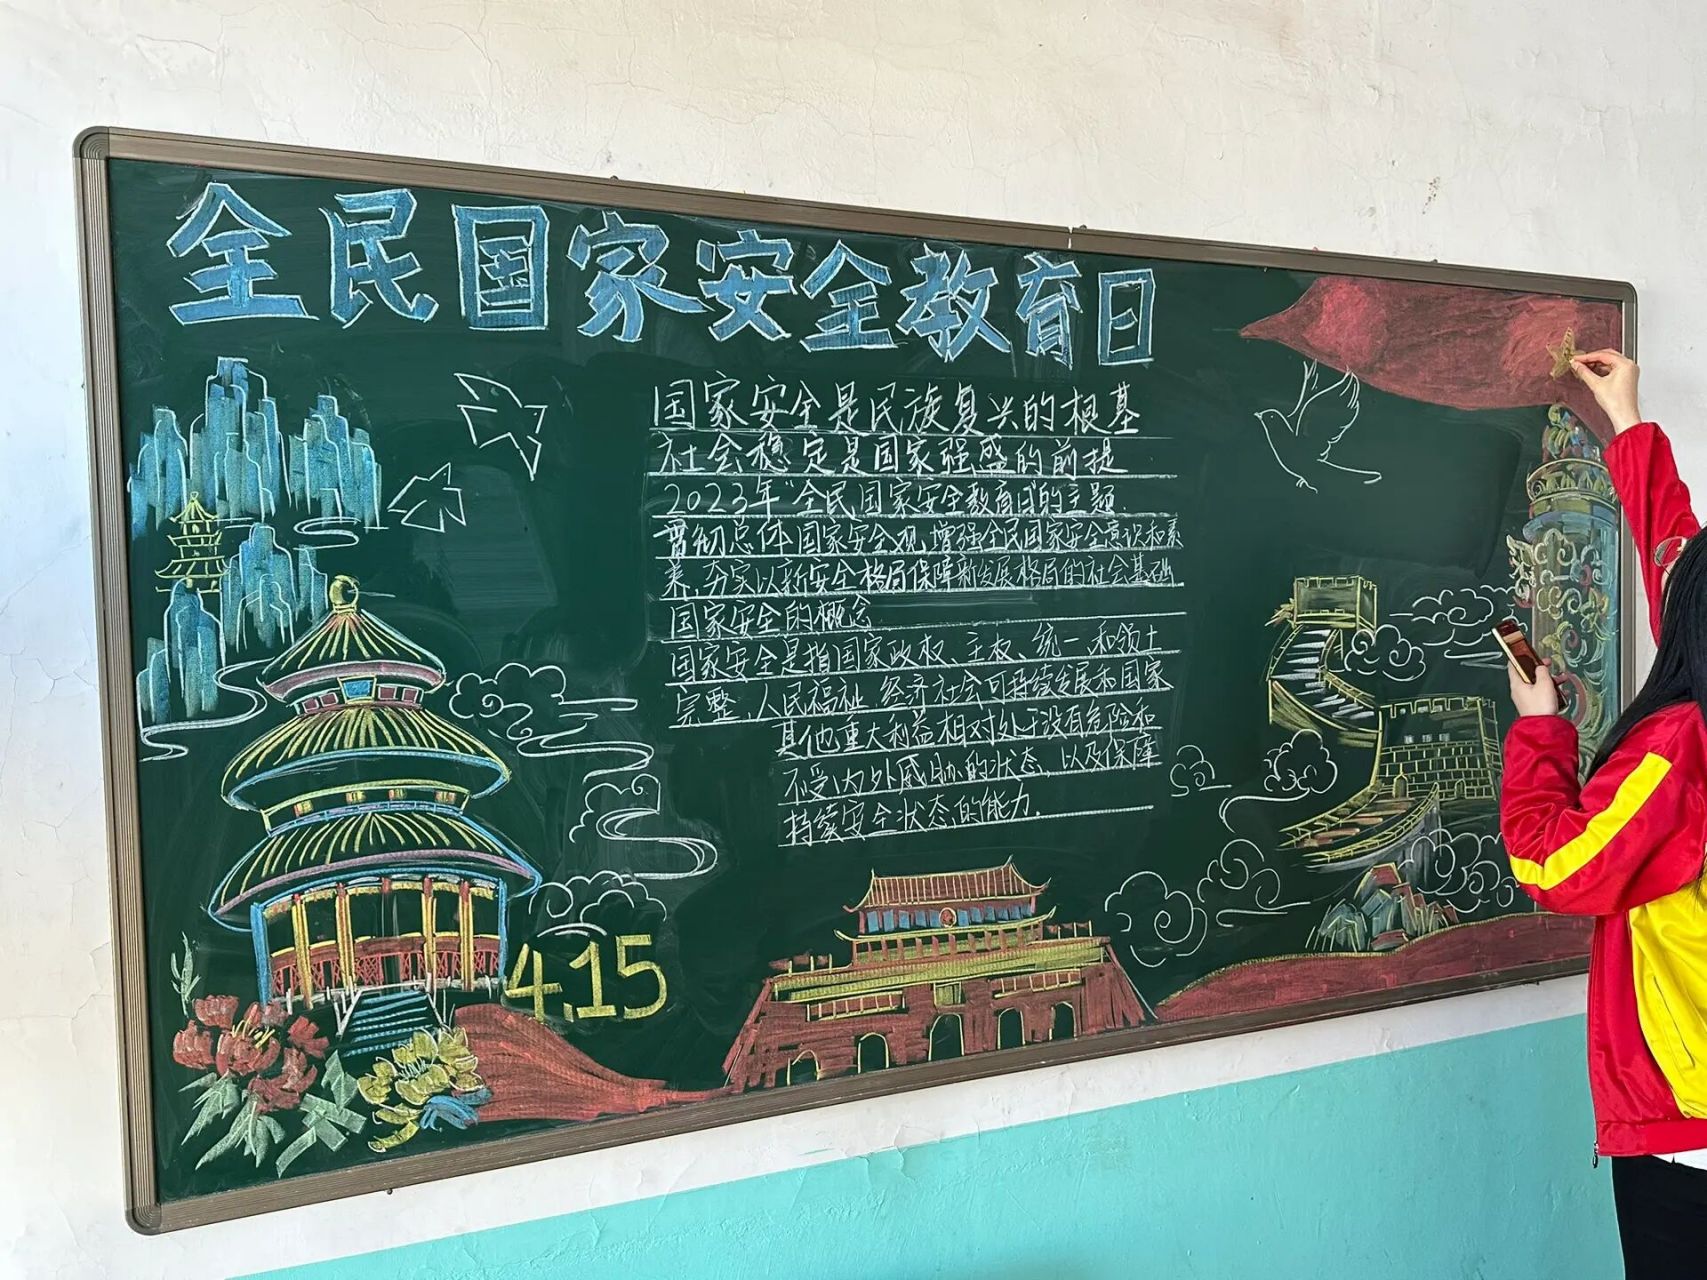 全民国家安全教育日
国家安全是民族复兴的根基
社会稳定是国家强盛的前提
2023年“全民国家安全教育日”的主题.
贯彻总体国家安全观,增强全民国家安全意识和素
养,夯实以新安全格局保障新发展格局的社会基础
国家安全的概念
国家安全是指国家政权、主权、统一和领土
完整、人民福祉、经济社会可持续发展和国家
其他重大利益相对处于没有危险和
不受内外威胁的状态,以及保障
持续安全状态的能力.
4.15